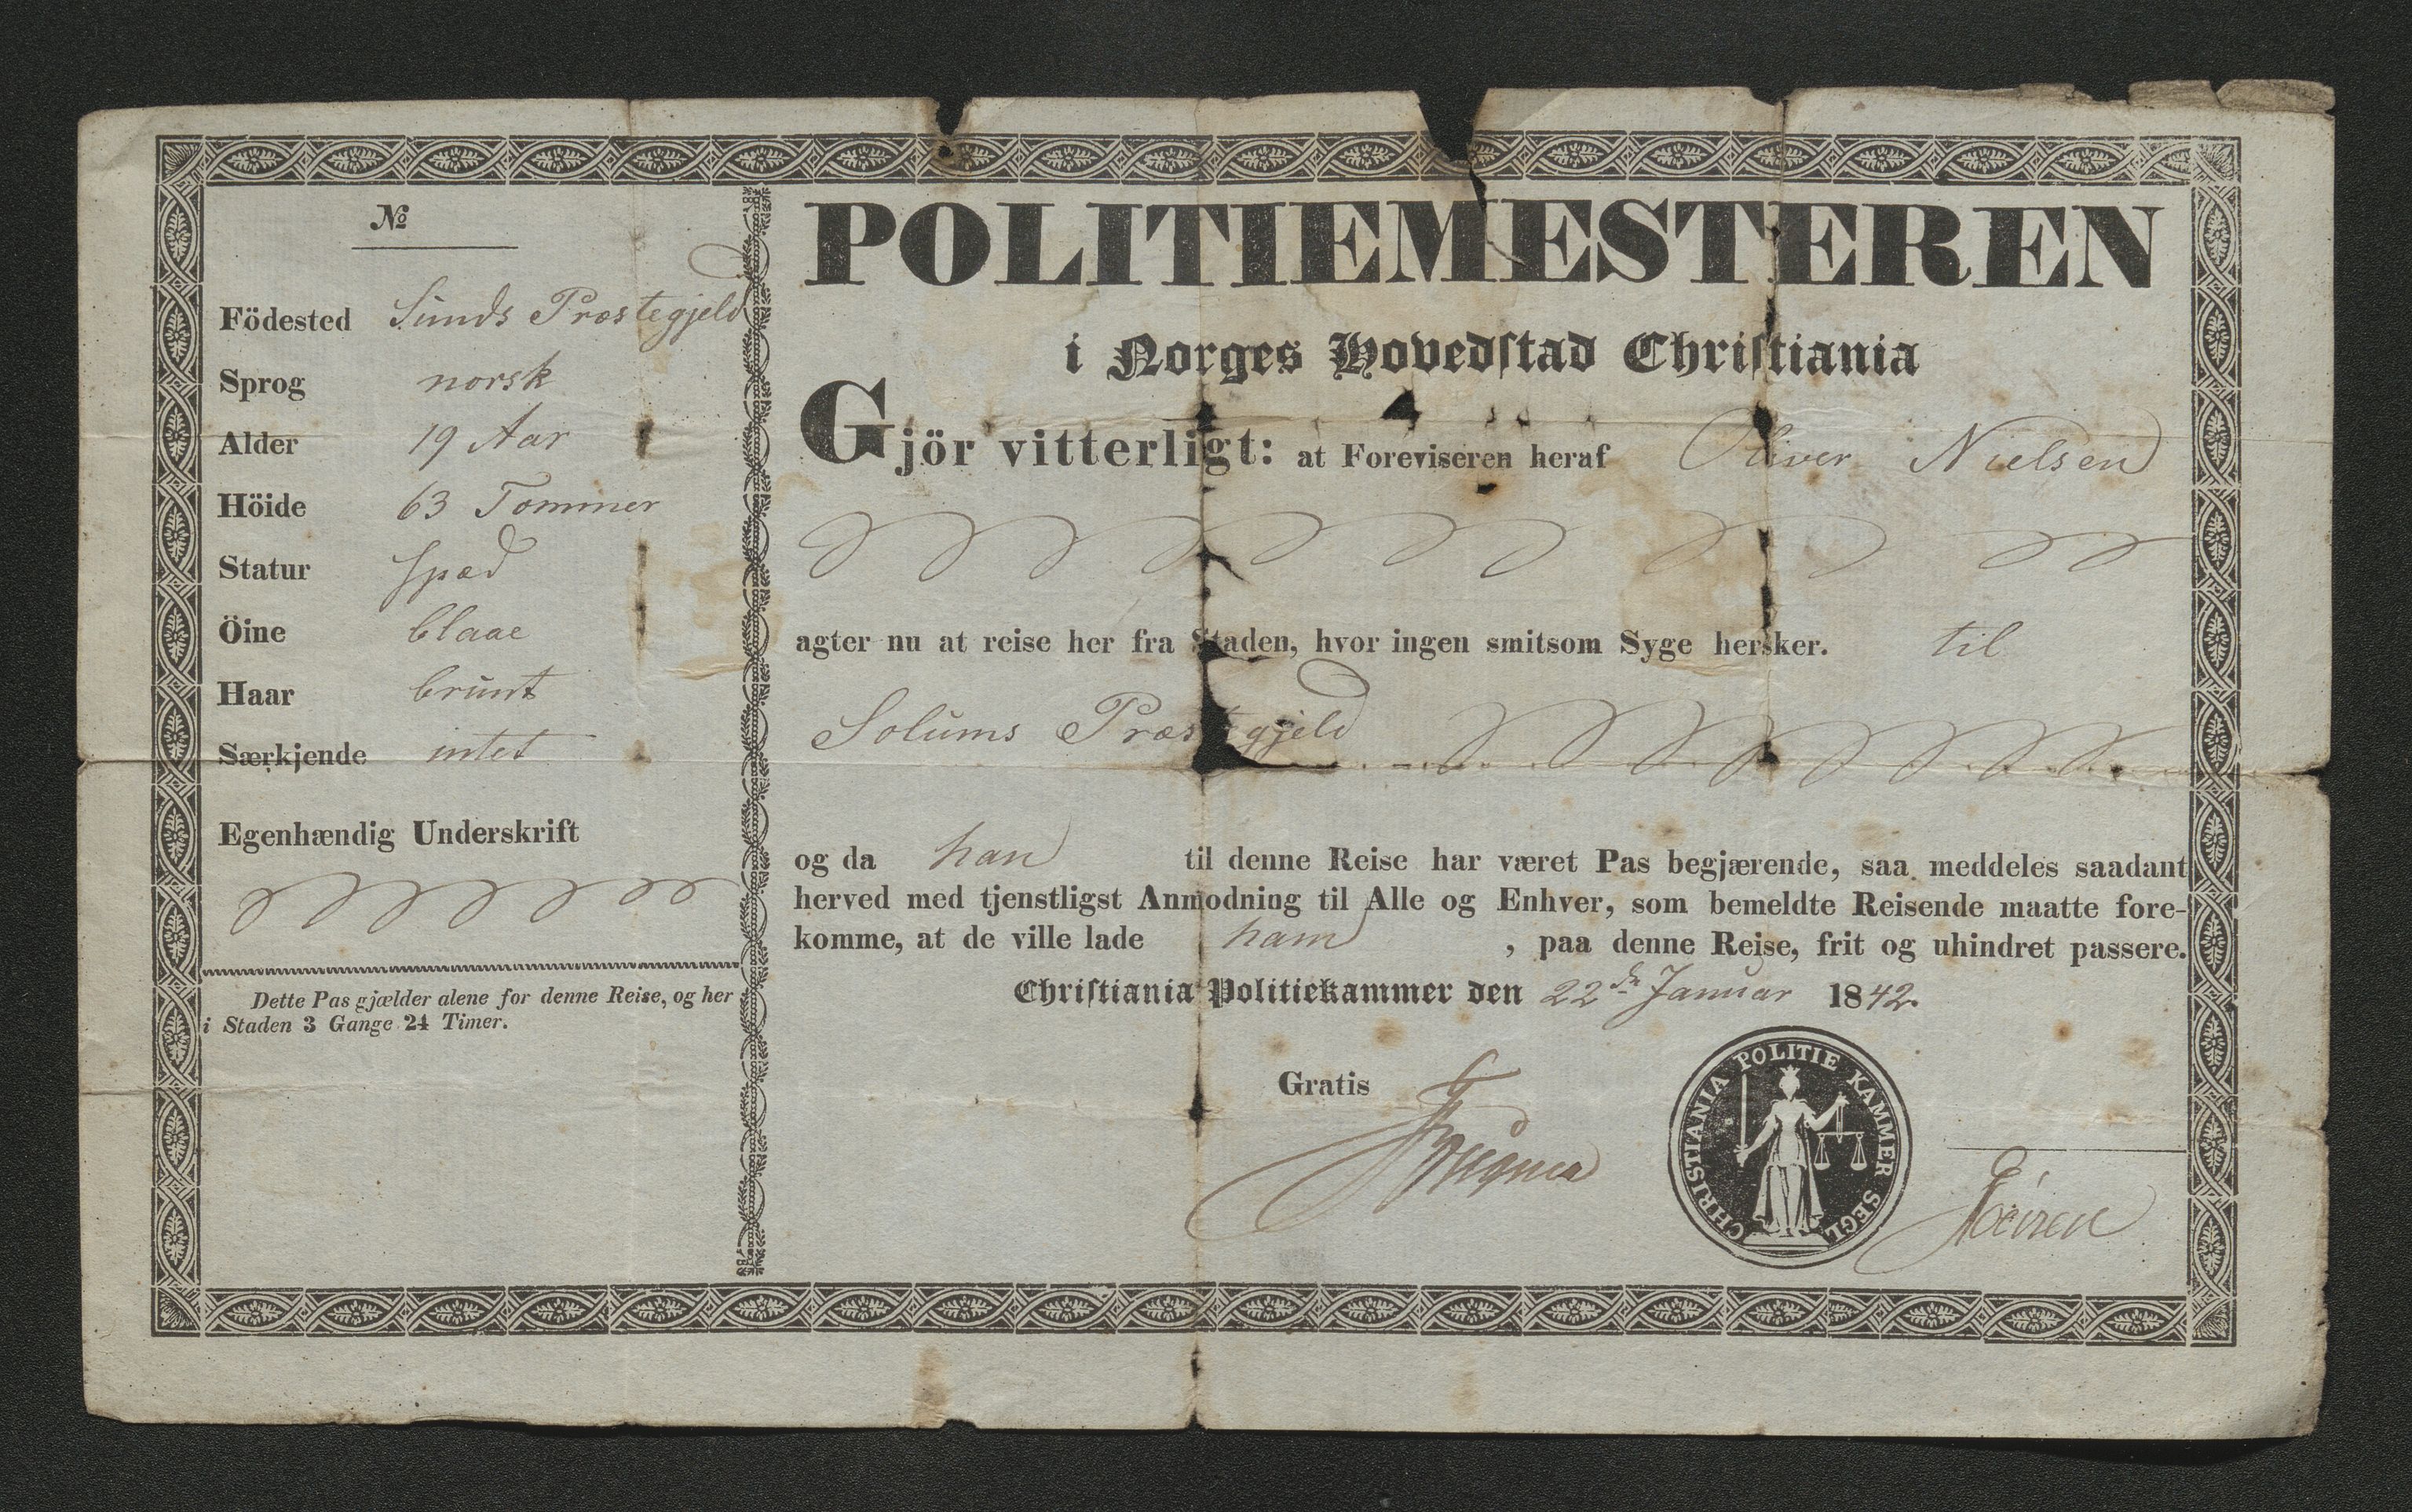 №
Födested Sunds Præstegjeld
Sprog norsk
Alder 19 Aar
Höide 63 Tommer
Statur spæd
Öine blaae
Haar brunt
Særkjende intet
Egenhændig Underskrift
Dette Pas gjælder alene for denne Reise, og her
i Staden 3 Gange 24 Timer.
POLITIEMESTEREN
i Norges Hovedstad Christiania
Gjör vitterligt: at Foreviseren heraf Oliver Nielsen
agter nu at reise her fra Staden, hvor ingen smitsom Syge hersker. til
Solums Præstegjeld
og da han til denne Reise har været Pas begjærende, saa meddeles saadant
herved med tjenstligst Anmodning til Alle og Enhver, som bemeldte Reisende maatte fore-
komme, at de ville lade ham , paa denne Reise, frit og uhindret passere.
Christiania Politiekammer den 22de Januar 1842.
Gratis
CHRISTIANIA POLITIE KAMMER SEGL